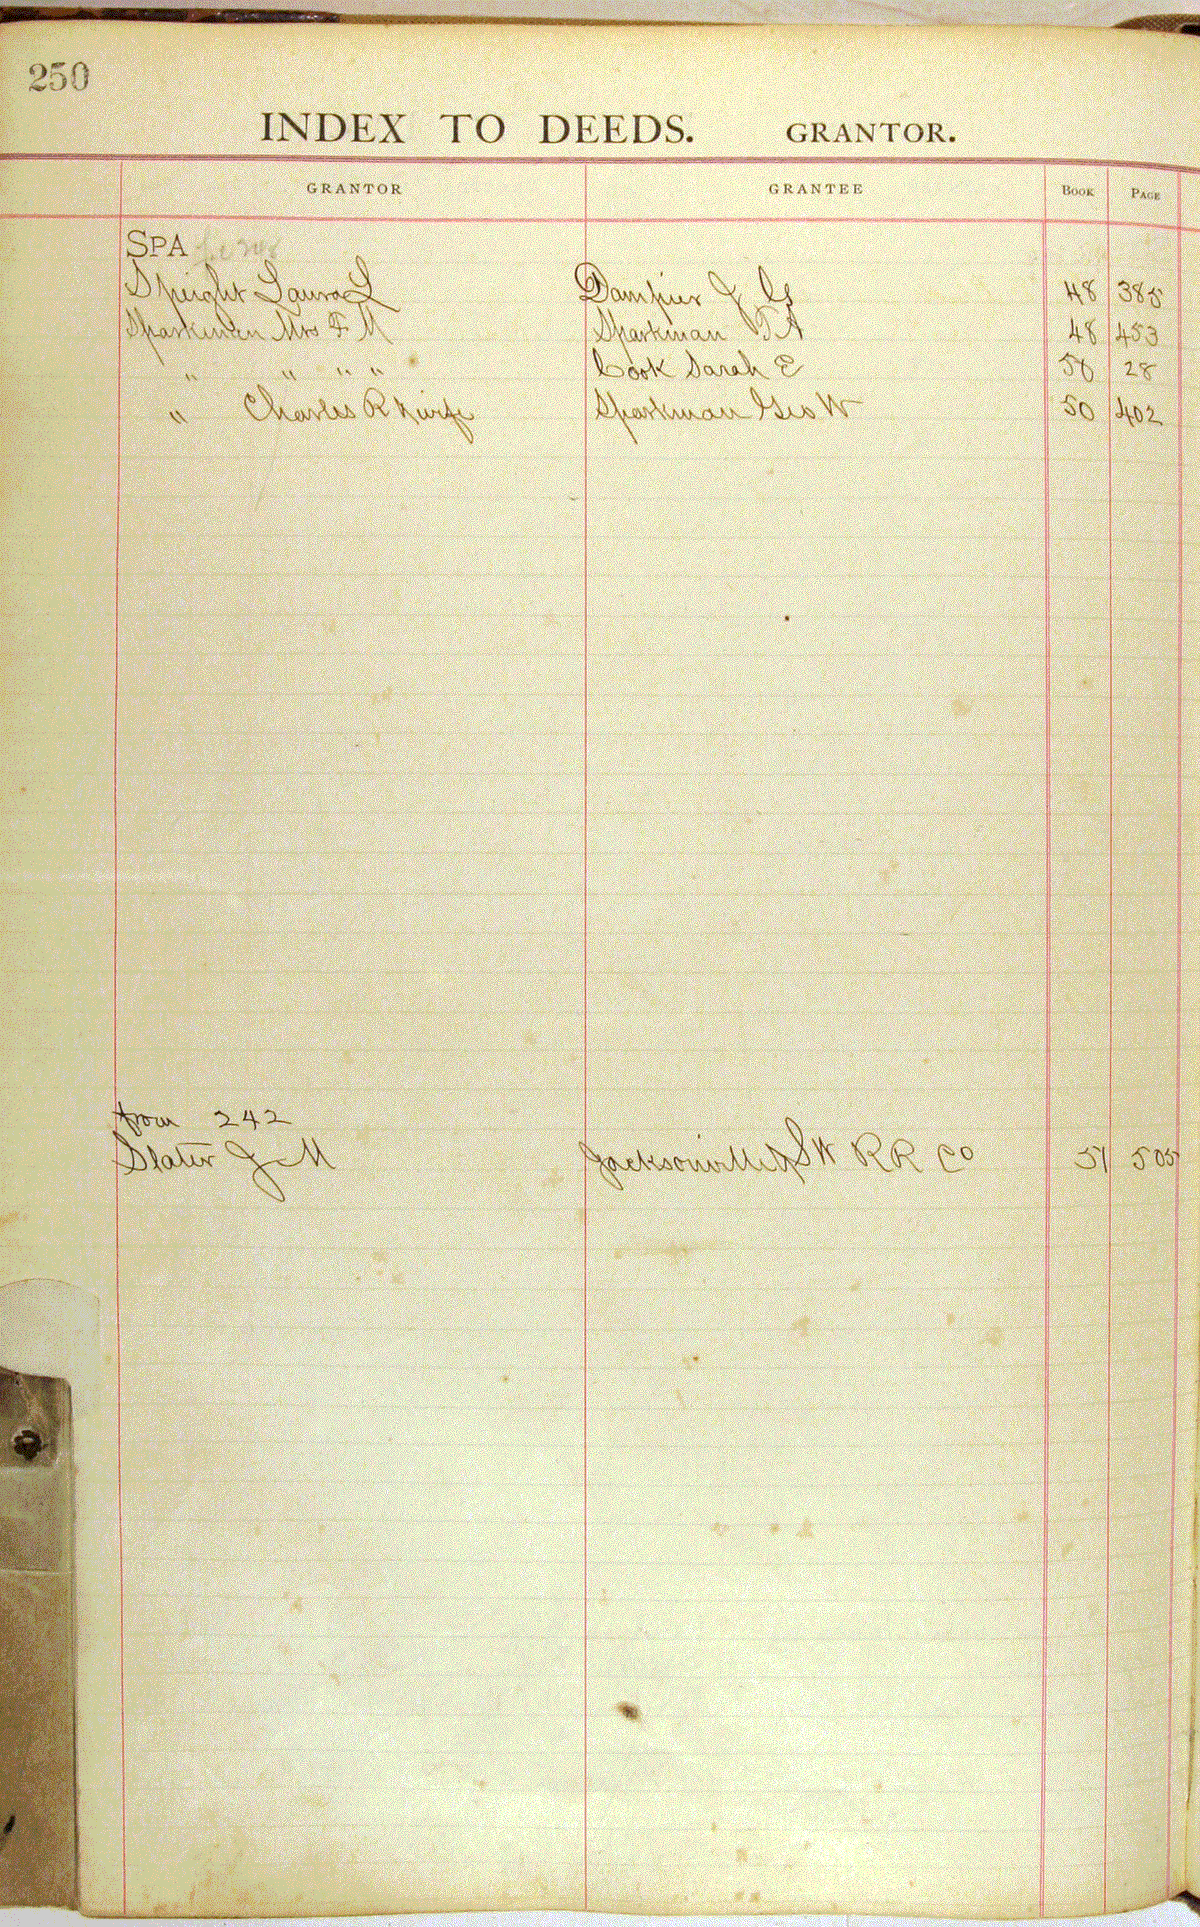 250
INDEX TO DEEDS. GRANTOR.
GRANTOR GRANTEE BOOK PAGE
SPA
Speight Laura L Dampier J G 48 385
Sparkman Mrs F M Sparkman T A 48 453
" " " " Cook Sarah E 50 28
" Charles R & wife Sparkman Geo W 50 402
from 242
Slater J M Jacksonville & SW RR Co 51 505